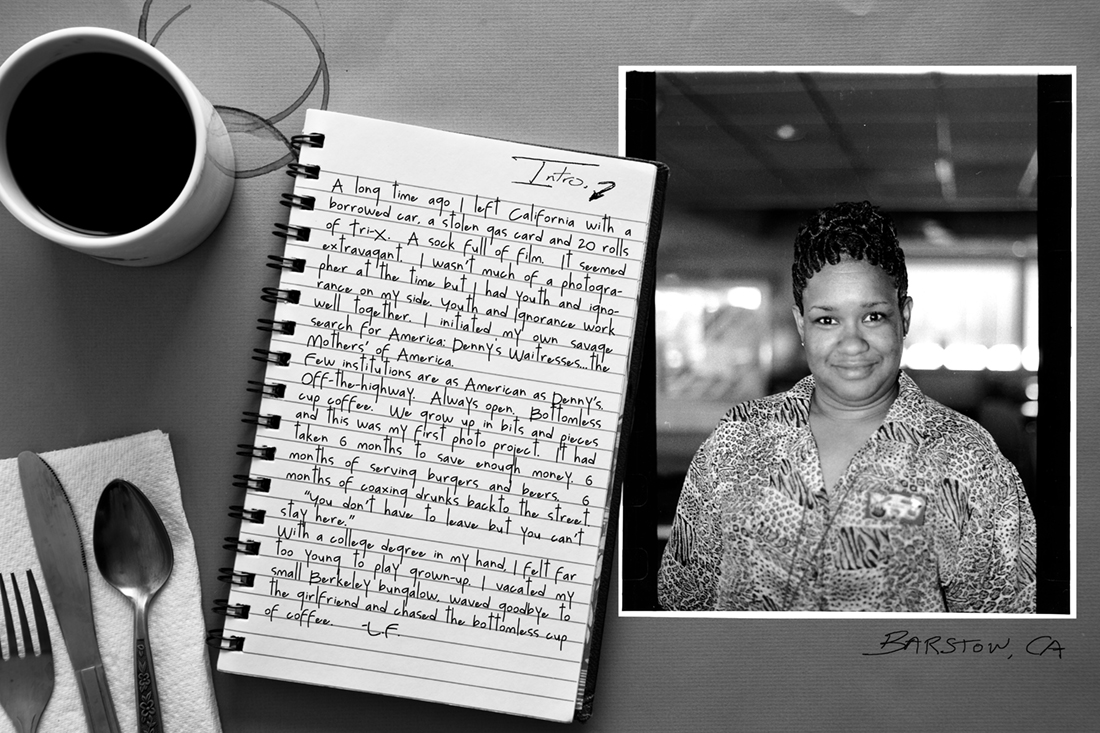 Intro.
A long time ago I left California with a
borrowed car, a stolen gas card and 20 rolls
of Tri-X. A sock full of film. It seemed
extravagant. I wasn't much of a photogra-
pher at the time but I had youth and igno-
rance on my side. Youth and Ignorance work
well together. I initiated my own savage
search for America: Denny's Waitresses...the
Mothers' of America.
Few institutions are as American as Denny's.
Off-the-highway. Always open. Bottomless
cup coffee. We grow up in bits and pieces
and this was my first photo project. It had
taken 6 months to save enough money. 6
months of serving burgers and beers. 6
months of coaxing drunks back to the street.
"You don't have to leave but you can't
stay here."
With a college degree in my hand, I felt far
too young to play grown-up. I vacated my
small Berkeley bungalow, waved goodbye to
the girlfriend and chased the bottomless cup
of coffee. -L.F.
BARSTOW, CA